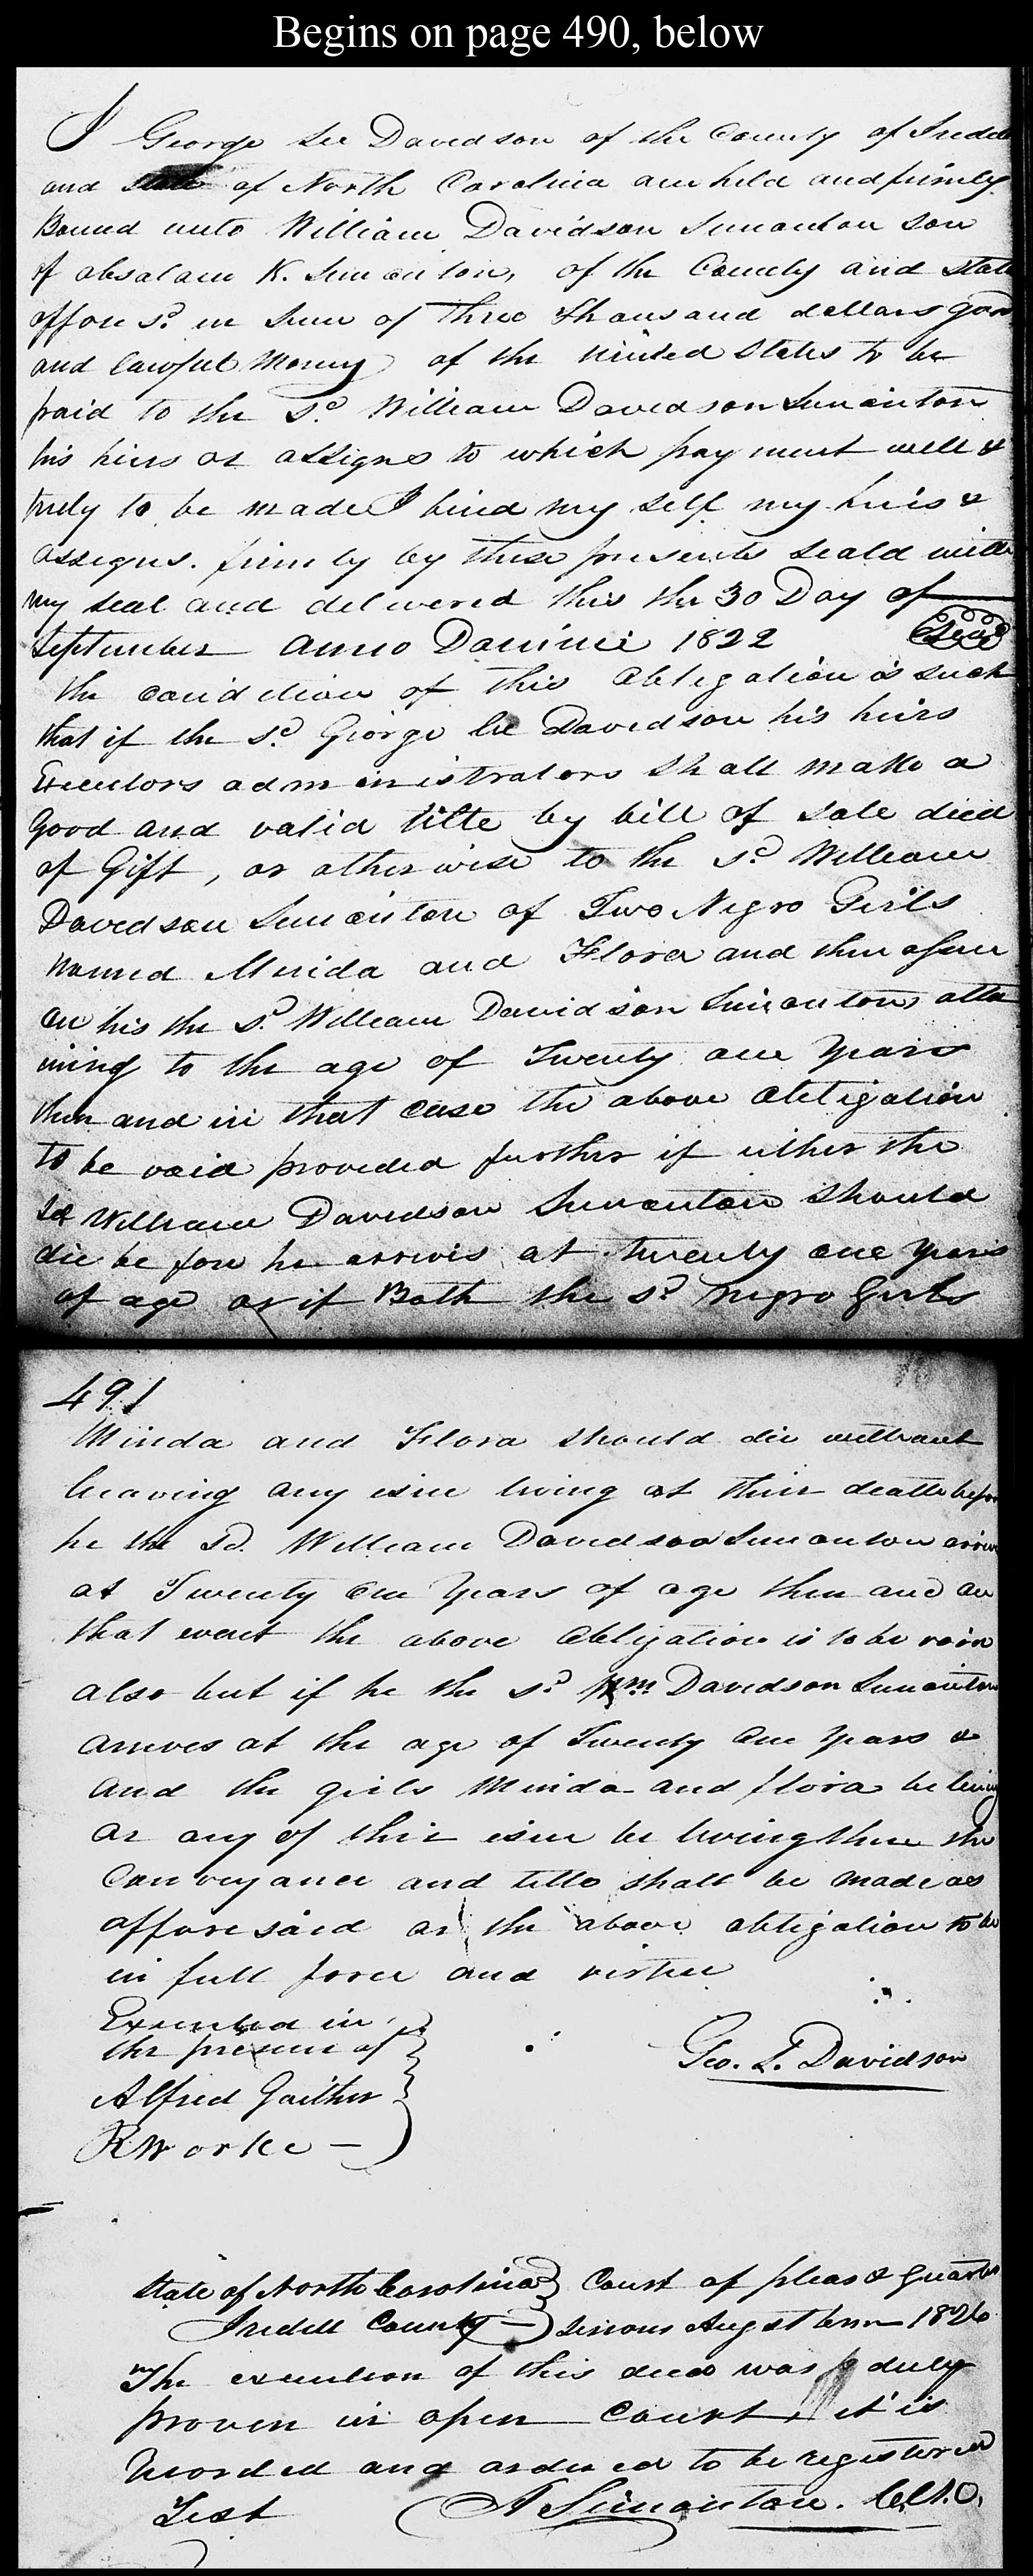 Begins on page 490, below
I George Lee Davidson of the County of Iredell
and state of North Carolina am held and firmly
Bound unto William Davidson Simonton son
of absalam K. Simonton, of the County and state
affore sd. in Sum of Three Thousand dollars good
and lawful Money of the united States to be
paid to the sd. William Davidson Simonton
his hiers or assigns to which pay ment well &
truly to be made I bind my self my heirs &
assigns. firmly by these presents seald with
my seal and delivered this the 30 Day of
September Anno Domini 1822 Seal
the condition of this Obligation is such
that if the sd. George Lee Davidson his heirs
Executors administrators shall make a
Good and valid title by bill of sale deed
of Gift, or otherwise to the sd. William
Davidson Simonton of Two Negro Girls
Named Minda and Flora and their
on his the sd. William Davidson Simonton atta
ining to the age of Twenty one years
then and in that case the above obligation
to be void provided further if either the
sd William Davidson Simonton should
die be fore he arrives at twenty one years
of age or if Both the sd. negro Girls
491
Minda and Flora should die without
leaving any issue living at their death before
he the sd. William Davidson Simonton arrives
at Twenty one years of age then and on
that event the above obligation is to be void
also but if he the sd. Wm. Davidson Simonton
arrives at the age of Twenty one years &
and the girls Minda and flora be living
or any of their issue be living then the
Conveyance and title shall be made as
affore said or the above obligation to be
in full force and virtue
Executed in
the presence of
Alfred Gaither
R Worke
Geo. L. Davidson
State of North Carolina Court of pleas & Quarter
Iredell County Sessions August term 1826
The execution of this deed was duly
proven in open Court, it is
Recorded and ordered to be registered
Test A Simonton. C.C.